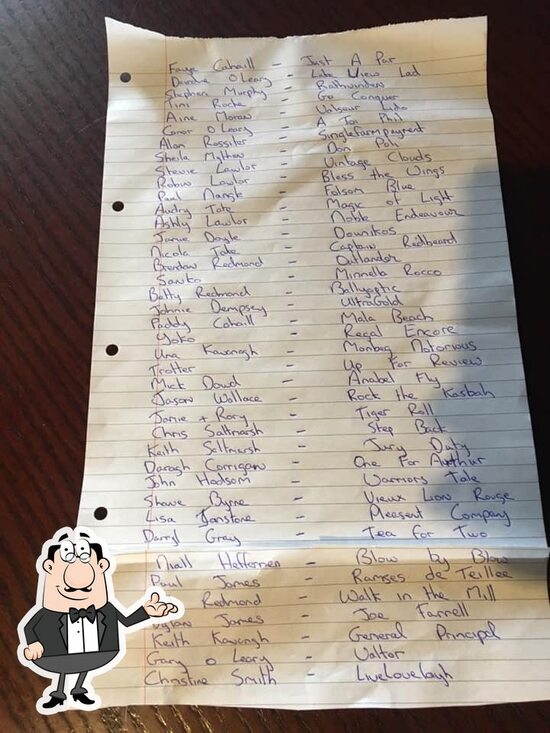 Faye Cahaill - Just A Par
Deirdre O'Leary - Lake View Lad
Stephen Murphy - Rathvinden
Tini Roche - Go Conquer
Aine Moran - Valseur Lido
Conor O Leary - A Toi Phil
Alan Rossiter - Singlefarmpayment
Sheila Mythen - Don Poli
Stevie Lawlor - Vintage Clouds
Robin Lawlor - Bless the Wings
Paul Nangle - Folsom Blue
Audry Tate - Magic of Light
Ashly Lawlor - Noble Endeavour
Jamie Doyle - Dounikos
Nicola Tate - Captain Redbeard
Brendan Redmond - Outlander
Santo - Minnella Rocco
Betty Redmond - Ballyoptic
Johnie Dempsey - UltraGold
Paddy Cahaill - Mala Beach
Yoko - Regal Encore
Una Kavanagh - Monbeg Notorious
Trotter - Up For Review
Mick Doud - Anabel Fly
Jason Wallace - Rock the Kasbah
Jamie + Rory - Tiger Roll
Chris Saltmarsh - Step Back
Keith Saltmarsh - Jury Duty
Daragh Corrigan - One For Arthur
John Hodsom - Warriors Tale
Shane Byrne - Vieux Lion Rouge
Lisa - Pleasent Company
Darryl Grey - Tea for Two
Niall Heffernen - Blow by Blow
Paul James - Ramses de Teillee
Redmond - Walk in the Mill
Dylan James - Joe Farrell
Keith Kavangh - General Principal
Gary O Leary - Valtor
Christine Smith - LiveLoveLaugh